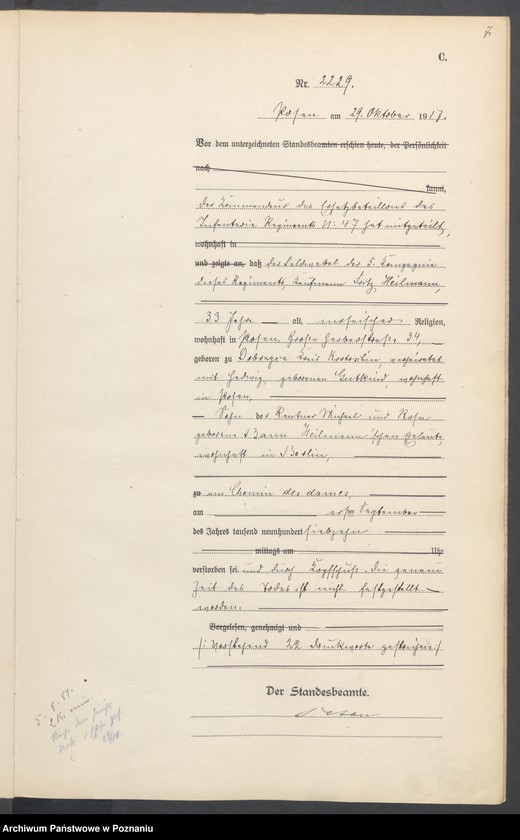 7
C.
Nr. 2229.
Posen am 29. Oktober 1917.
Vor dem unterzeichneten Standesbeamten erschien heute, der Persönlichkeit
nach
kannt,
Der Kommandeur des Ersatzbataillons des
Infanterie Regiments Nr. 47 hat mitgeteilt,
wohnhaft in
und zeigte an, daß der Feldwebel der 5. Kompagnie
dieses Regiments, Kaufmann Fritz Heilmann,
33 Jahre alt, mosaischer Religion,
wohnhaft in Posen, Große Gerberstraße 34,
geboren zu Kreis Krotoschin, verheiratet
mit Hedwig, geborenen Gutkind, wohnhaft
in Posen,
Sohn der Rentner Michael und Rosa
geborene Heilmann'schen Eheleute,
wohnhaft in Berlin,
zu am Chemin des dames,
am September
des Jahres tausend neunhundert siebzehn
mittags um Uhr
verstorben sei und durch Kopfschuß. Die genaue
Zeit des Todes ist nicht festgestellt
worden.
Vorgelesen, genehmigt und
/: Vorstehend 22 Druckworte gestrichen :/
Der Standesbeamte.
5. 8. 84.
Archiwum Państwowe w Poznaniu